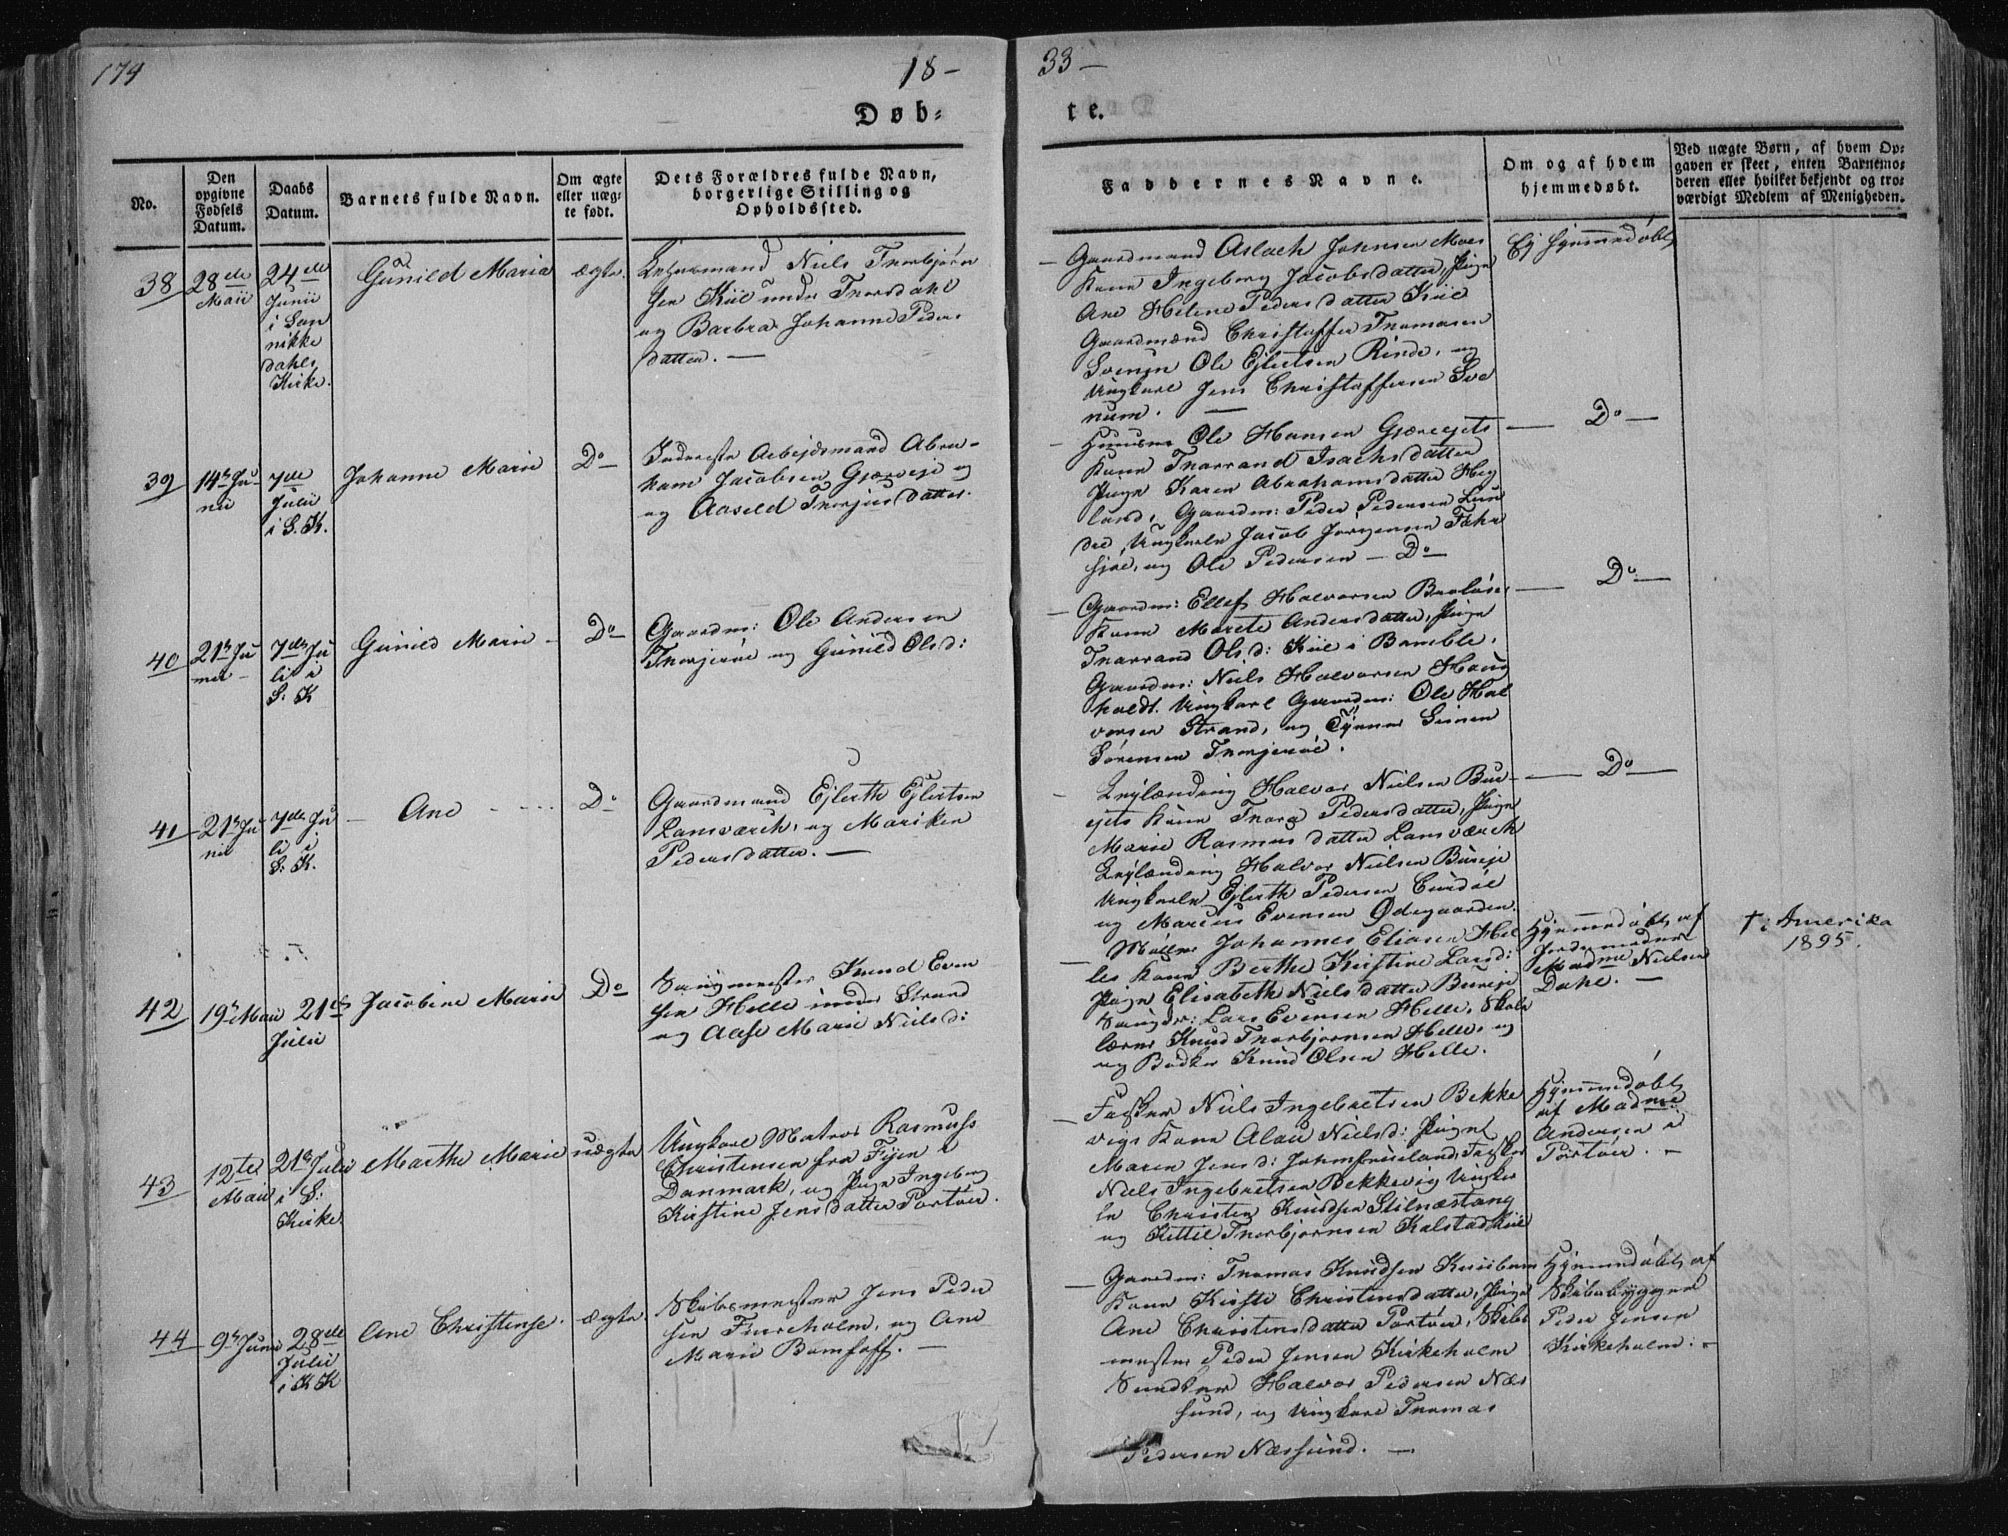 174
18 –
33 –
Døb=
te.
No.
Den opgivne Fødsels Datum.
Daabs Datum.
Barnets fulde Navn.
Om ægte eller uægte født.
Dets Forældres fulde Navn, borgerlige Stilling og Opholdssted.
Faddernes Navne.
Om og af hvem hjemmedøbt.
Ved uægte Børn, af hvem Op=
gaven er skeet, enten Barnemo=
deren eller hvilket bekjendt og tro=
værdigt Medlem af Menigheden.
38
28de
Maii
24de
Junii
i San
nikke
dahls
Kirke.
Gunild Maria
ægte
Niels Thorbjørn
sen Kiil under Thorsdahl
og Barbra Johanne Peders
datter. –
Gaardmand Aslach Johnsen Moes
Kone Ingeborg Jacobsdatter, Pige
Ane Helene Pedersdatter Kiil
Gaardmænd Christoffer Thomasen
Ole Ejlertsen Rinde, og
Ungkarl Jens Christoffersen Sve
num. –
Ej hjemmedøbt
39
14de Ju
nii
7de
Julii
i S. K.
Johanne Marie
Do
Inderste Arbejdsmand Abra-
ham Jacobsen Gjerveje og
Aaseld Thorjusdatter.
Ole Hansen Gjerejets
Kone Thorrand Isachsdatter
Pige Karen Abrahamsdatter Heg
land, Gaardm: Peder Pedersen Lun
dee Ungkarle Jacob Jørgensen
og Ole Pedersen – Do –
Do –
40
21de Ju
nii –
7de Ju
li i
S: K
Gunild Marie –
Do
Gaardm: Ole Andersen
og Gunild Olsd:
Gaardm: Ellef Halvorsen
Kone Marete Andersdatter, Pige
Thorrand Olsd: Kiil i Bamble,
Gaardm: Niels Halvorsen Houg
holdt. Ungkarl Gaardm: Ole Hal
vorsen Strand, og Simen
Sørensen
Do –
41
21de Ju
nii
7de Ju
li i
S: K.
Ane
Do
Gaardmand Ejlerth Ejlertsen
Lansværch, og Mariken
Pedersdatter. –
Halvor Nielsen Bur-
ejets Kone Thora Pedersdatter, Pige
Marie Rasmusdatter Lansværch
Halvor Nielsen Bureje
Ungkarle Ejlerth Pedersen
og Marius Evensen Ødegaarden
Do –
42
19de Maii
21de
Julii
Jacobine Marie
Do
Saugmester Knud Even
sen Helle under Strand
og Aase Marie Nielsd:
Møller Johannes Eliasen Hel
les Kone Berthe Kirstine Larsd:
Pige Elisabeth Nielsdatter Bureje
Lars Evensen Helle, Skole
lærer Knud Thorbjørnsen Helle, og
og Bødker Knud Olsen Helle.
Hjemmedøbt af
Jordemoder
Madme Nielsen
Dahl. –
† i Amerika
1895.
43
12te
Maii
21de Julii
i S:
Kirke
Marthe Marie
uægte
Ungkarl Matros Rasmus
Christensen fra Fyen i
Danmark, og Pige Ingeborg
Kirstine Jensdatter Portøer.
Fisker Niels Ingebretsen Bekke
vigs Kone Nielsd: Pige
Maren Jensd: Fisker
Niels Ingebretsen Bekkevig Ungkar
le Christen Knudsen Stilnestang
og Kettil Thorbjørnsen Kalstadkiil
Hjemmedøbt
af Madme
Andersen i
Portøer. –
44
9de Junii
28de
Julii
i K K
Ane Christense.
ægte
Skibsmester Jens Peder
sen Furuholm, og Ane
Marie Bomhoff. –
Gaardm: Thomas Knudsen
Kone Kirsti Christensdatter, Pige
Ane Christensdatter Portøer, Skibs
mester Peder Jensen Kirkeholm
Halvor Pedersen Næs
sund, og Ungkarl Thomas
Pedersen Næssund. –
Hjemmedøbt af
Skibsbygger
Peder Jensen
Kirkeholm. –